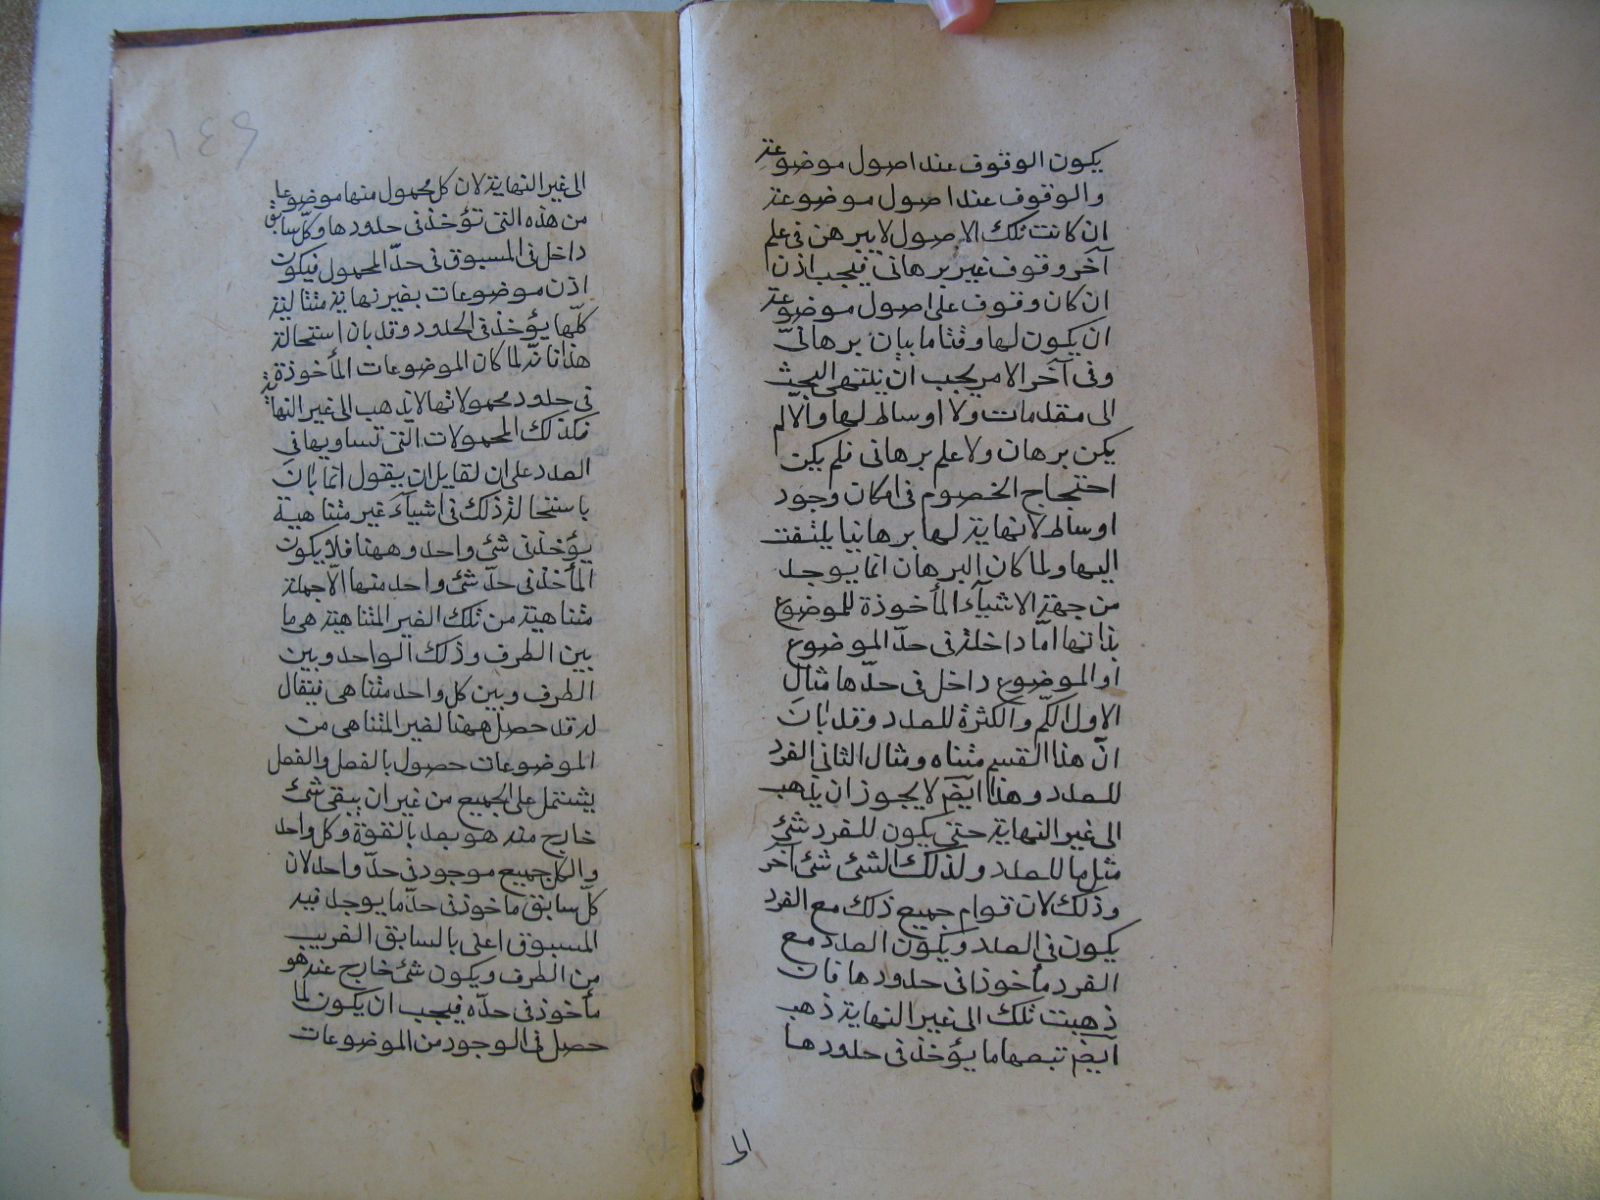 يكون الوقوف عند اصول موضوعة
والوقوف عند اصول موضوعة
ان كانت تلك الاصول لا يبرهن فى علم
آخر وقوف غير برهانى فيجب اذن
ان كان وقوف على اصول موضوعة
ان يكون لها وقتا ما بيان برهانىّ
وفى آخر الامر يجب ان ينتهى البحث
الى مقدمات ولا اوساط لها والّا لم
يكن برهان ولا علم برهانى فلم يكن
احتجاج الخصوم فى امكان وجود
اوساط لا نهاية لها برهانيا يلتفت
اليها ولما كان البرهان انما يوجد
من جهة الاشيآء المأخوذة للموضوع
بذاتها امّا داخلة فى حدّ الموضوع
او الموضوع داخل فى حدّها مثال
الاول الكّم والكثرة للعدد وقد بان
انّ هذا القسم متناه ومثال الثانى الفرد
للعدد وهذا ايضم لا يجوز ان يذهب
الى غير النهاية حتى يكون للفرد شئ
مثل ما للعدد ولذلك الشئ شئ آخر
وذلك لان قوام جميع ذلك مع الفرد
يكون فى العدد ويكون العدد مع
الفرد مأخوذا فى حدودها فان
ذهبت تلك الى غير النهاية ذهب
ايضم تبعها ما يؤخذ فى حدودها
الى
١٤٩
الى غير النهاية لان كل محمول منها موضوعا
من هذه التى تؤخذ فى حدودها وكلّ سابق
داخل فى المسبوق فى حدّ المحمول فيكون
اذن موضوعات بغير نهاية متتالية
كلّها يؤخذ فى الحدود وقد بان استحالة
هذا فانّه لما كان الموضوعات المأخوذة
فى حدود محمولاتها لا يذهب الى غير النهاية
فكذلك المحمولات التى تساويها فى
العدد على ان لقايل ان يقول انما بان
باستحالة ذلك فى اشيآء غير متناهية
يؤخذ فى شئ واحد وههنا فلا يكون
المأخذ فى حدّ شئ واحد منها الّا جملة
متناهية من تلك الغير المتناهية هى ما
بين الطرف وذلك الواحد وبين
الطرف وبين كل واحد متناهى فيقال
له قد حصل ههنا لغير المتناهى من
الموضوعات حصول بالفعل والفعل
يشتمل على الجميع من غير ان يبقى شئ
خارج منه هو بعد بالقوة وكل واحد
والكل جميع موجود فى حدّ واحد لان
كلّ سابق مأخوذ فى حدّ ما يوجد فيه
المسبوق اعنى بالسابق القريب
من الطرف ويكون شئ خارج عنه هو
مأخوذ فى حدّه فيجب ان يكون لما
حصل فى الوجود من الموضوعات